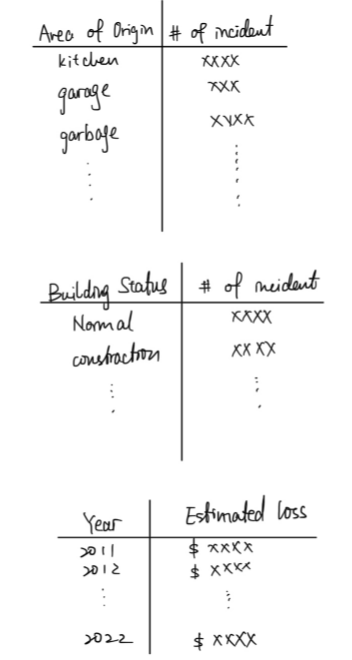 Area of Origin # of incident
kitchen xxxx
garage xxx
garbage xxxx
Building Status # of incident
Normal xxxx
constraction xxxx
Year Estimated loss
2011 $ xxxx
2012 $ xxxx
2022 $ xxxx